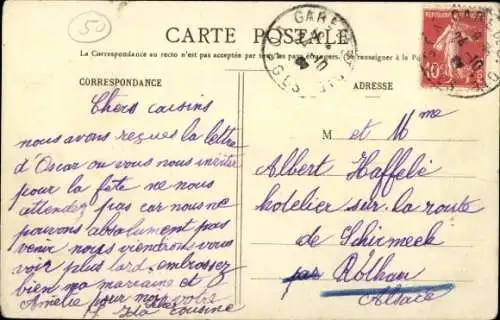 50
CARTE POSTALE
La Correspondance au recto n'est pas acceptée par tous les pays étrangers. (Se renseigner à la Po
CORRESPONDANCE
ADRESSE
GARE
REPUBLIQUE
10
Chers cousins
nous avons reçues la lettre
d'Oscar ou vous nous invitée
pour la fête ne nous
attendez pas car nous ne
pouvons absolument pas
venir nous viendrons vous
voir plus tard. embrassez
bien ma marraine et
Amélie pour moi votre
cousine
M et Mme
Albert Haffelé
hotelier sur la route
de Schirmeck
par Rothau
Alsace